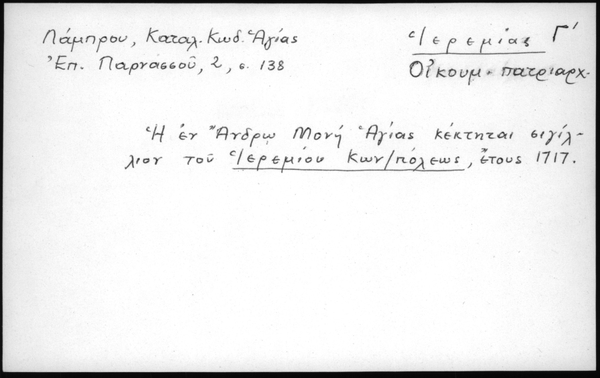 Λάμπρου, Καταλ. Κωδ. Ἁγίας
Ἐπ. Παρνασσοῦ, 2, σ. 138
Ἱερεμίας Γ΄
Οἰκουμ. πατριαρχ.
Ἡ ἐν Ἄνδρῳ Μονή Ἁγίας κέκτηται σιγίλ-
λιον τοῦ Ἱερεμίου Κων/πόλεως, ἔτους 1717.